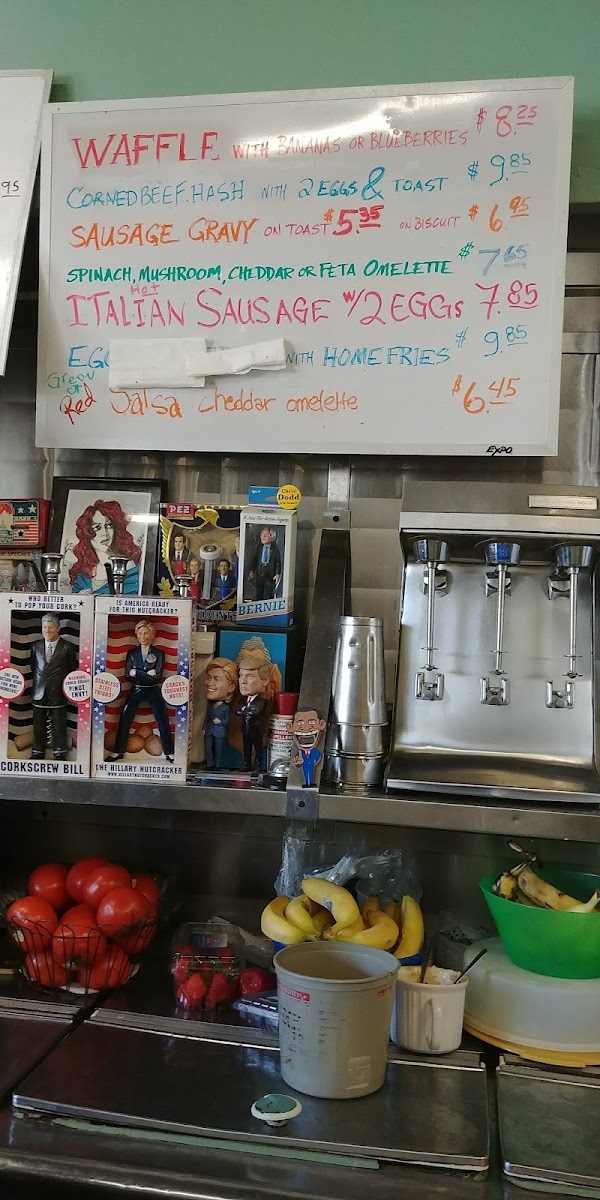 95
WAFFLE WITH BANANAS OR BLUEBERRIES $8.25
CORNED BEEF. HASH WITH 2 EGGS & TOAST $9.85
SAUSAGE GRAVY ON TOAST $5.35 ON BISCUIT $6.95
SPINACH, MUSHROOM, CHEDDAR OR FETA OMELETTE $7.65
Hot
ITALIAN SAUSAGE W/2 EGGS 7.85
WITH HOME FRIES $9.85
Green or Red Salsa cheddar omelette $6.45
EXPO
PEZ
Chris Dodd
BERNIE
WHO BETTER
TO POP YOUR CORK?
PINOT
ENVY!
CORKSCREW BILL
IS AMERICA READY
FOR THIS NUTCRACKER?
STAINLESS
STEEL
THIGHS!
CRACKS
TOUGHEST
NUTS!
THE HILLARY NUTCRACKER
WWW.HILLARYNUTCRACKER.COM